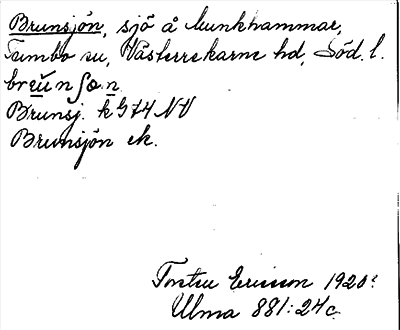 Brunsjön, sjö å Munkhammar,
Tumbo sn, Västerrekarne hd, Söd. l.
brŭnʃøn
Brunsj. k G74 NV
Brunsjön ek.
Torsten Ericsson 1920?
Ulma 881:24c.